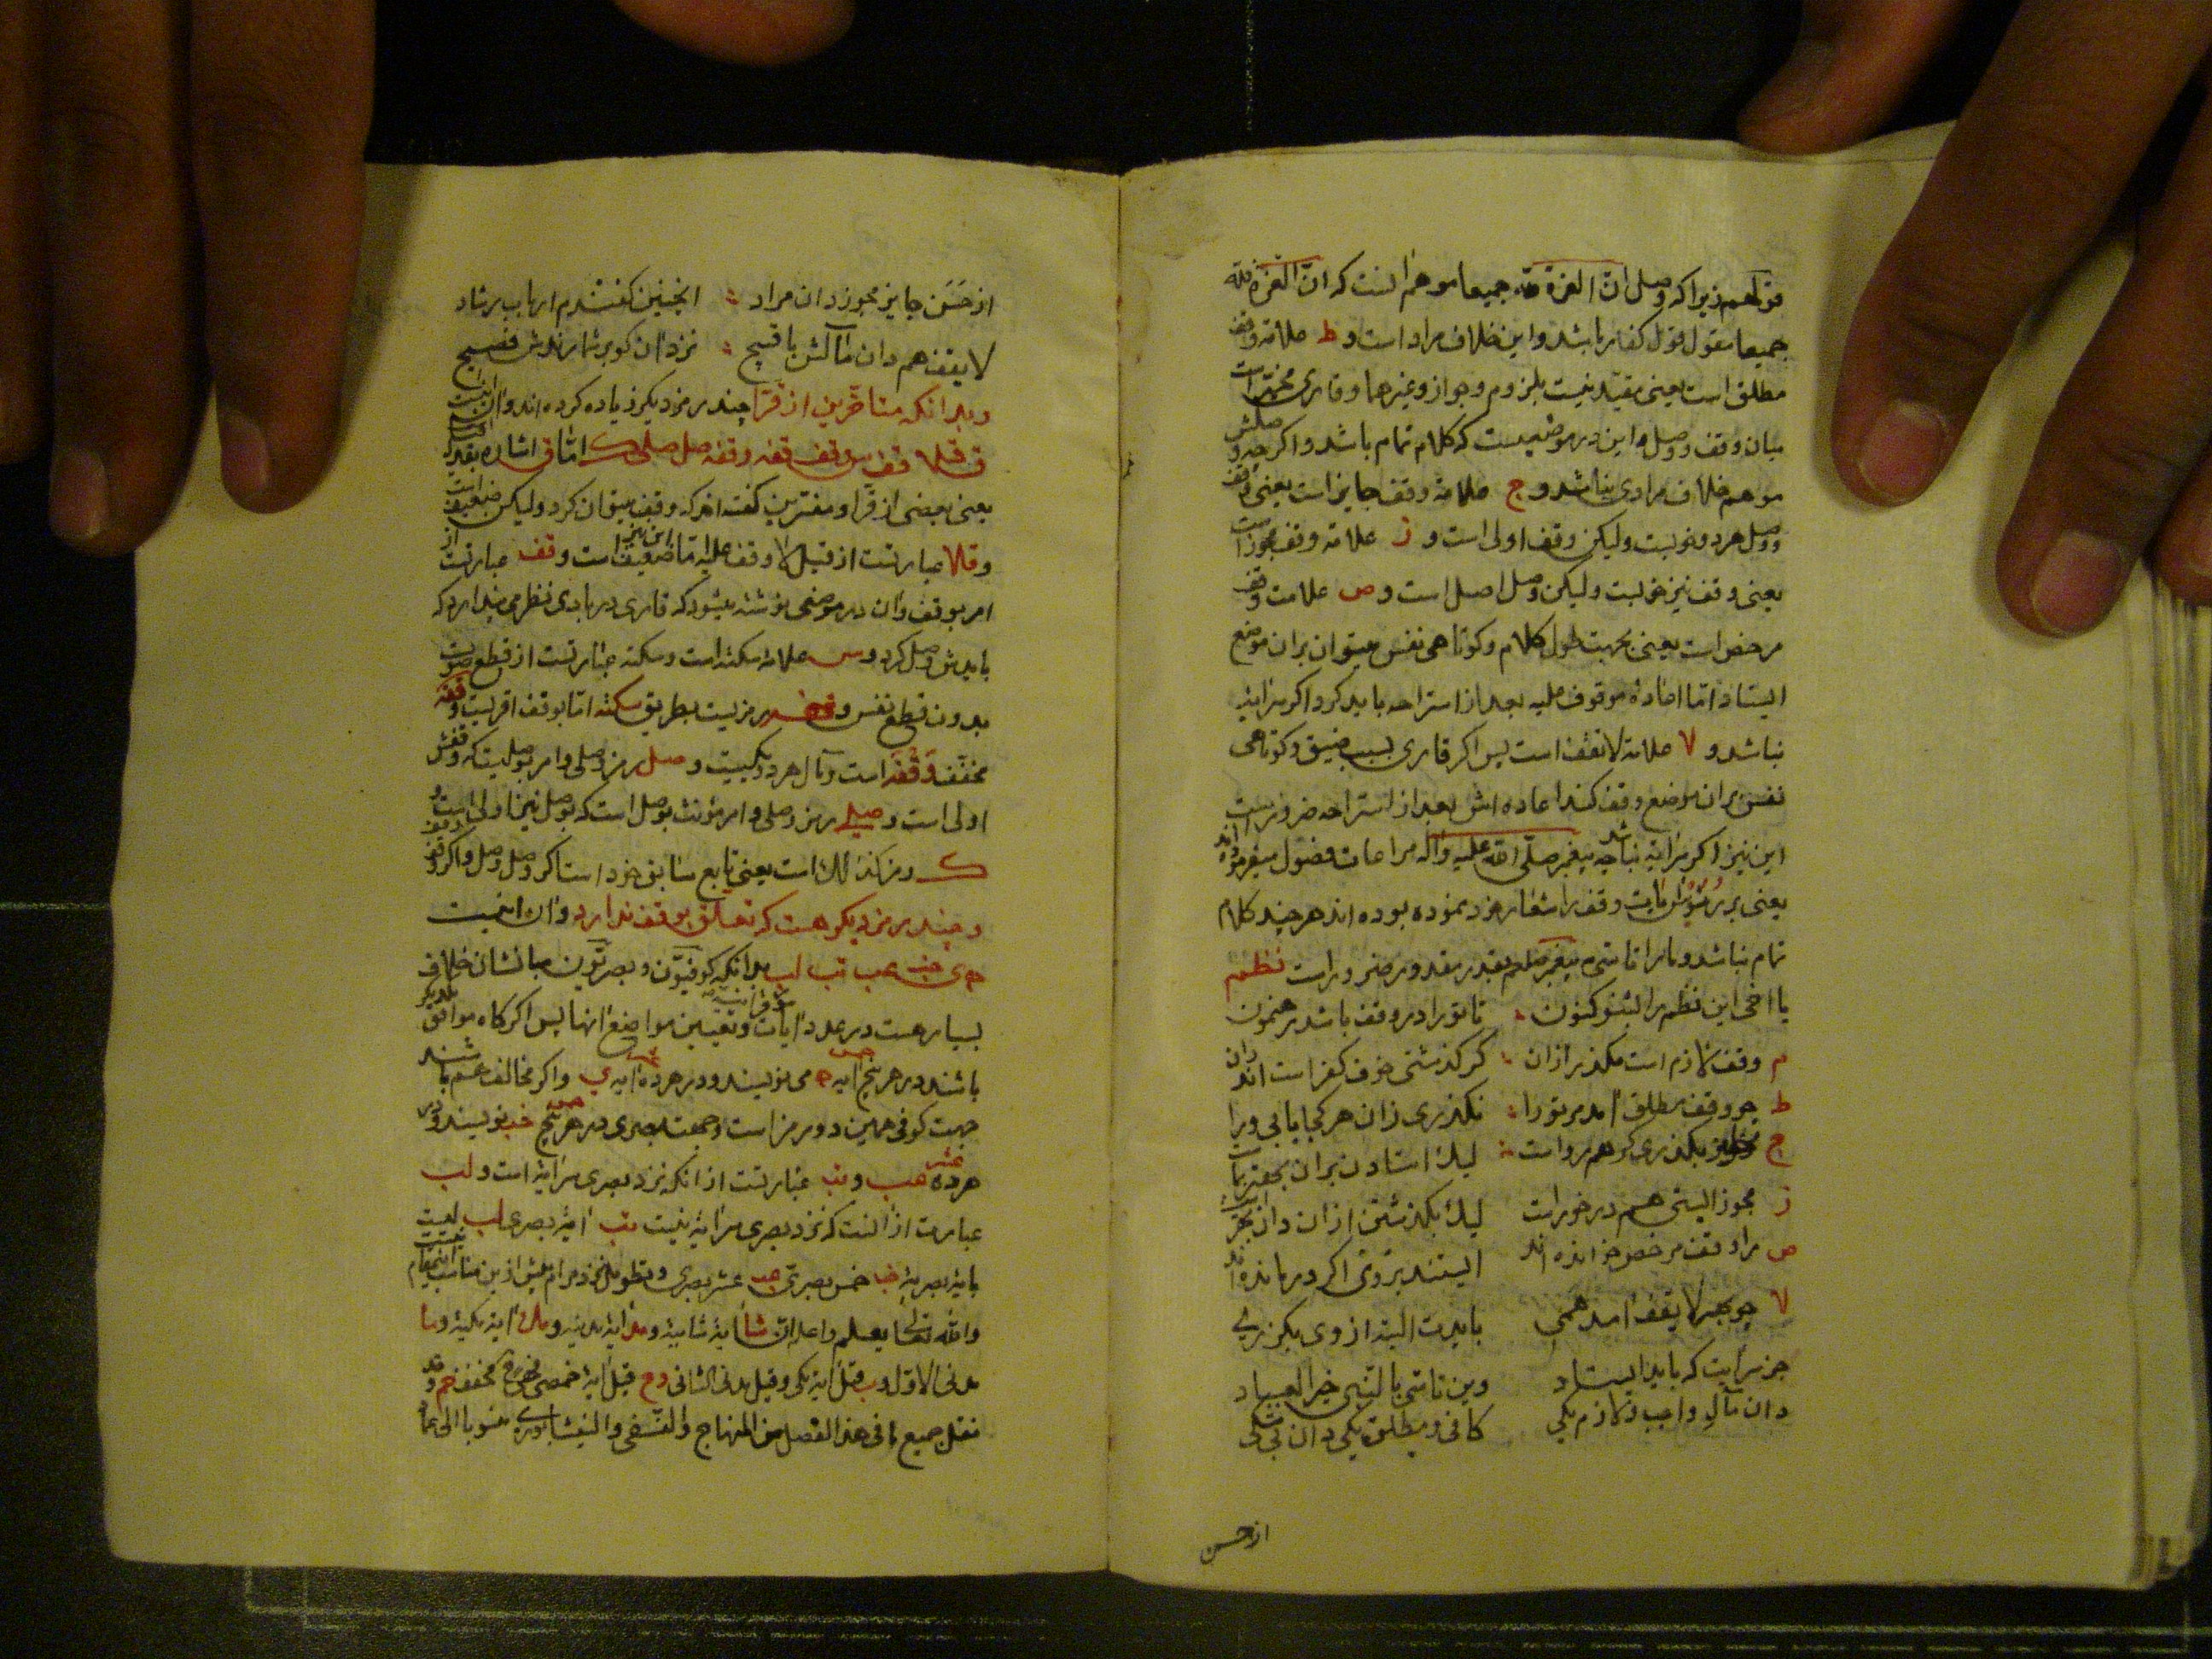 قولهم زیرا که وصل ان العزة لله جمیعا موهم انست که ان العزة لله
جمیعا مقول قول کفار باشد و این خلاف مراد است و ط علامة وقف
مطلق است یعنی مقید نیست بلزوم و جواز و غیرهما و قاری مختیر است
میان وقف و وصل و این در موضعیست که کلام تمام باشد و اگرچه وصلش
موهم خلاف مرادی نباشد و ج علامة وقف جایز است یعنی وقف
و وصل هر دو خوبست ولیکن وقف اولی است و ز علامة وقف مجوز است
یعنی وقف نیز خوبست ولیکن وصل اصل است و ص علامت وقف
مرخص است یعنی بجهت طول کلام و کوتاهی نفس میتوان بران موضع
ایستاد اما اعادهٔ موقوف علیه بعد از استراحه باید کرد اگر سرآیة
نباشد و لا علامة لا تقف است پس اگر قاری بسبب ضیق و کوتاهی
نفس بران موضع وقف کند اعاده اش بعد از استراحه ضرورست
این نیز اگر سرآیة نباشد چه پیغمبر صلی الله علیه وآله مراعات فصول میفرموده اند
یعنی بر رؤس آیات وقف را شعار خود نموده بوده اند هرچند کلام
تمام نباشد و ما را تاسی پیغمبر صلعم بقدر مقدور ضرور است نظم
یا اخی این نظم را بشنو کنون تا تو را در وقف باشد رهنمون
م وقف لازم است مگذر ازان گر گذشتی خوف کفر است اندران
ط چو وقف مطلق آمد مر تو را نگذری زان هر کجا یابی ورا
ج بگذری گر هم رواست لیک استادن بران بهتر
ز مجوز ایستی هم در خورست لیک بگذشتن ازان دان بهتر است
ص را وقف مرخص خوانده اند ایستند بر وی اگر درمانده اند
لا چو لا یقف آمد همی بایدت البته از وی بگذری
جز سرآیت که باید ایستاد وین تاسی بالنبی خیر العباد
دان مآل واجب و لازم یکی کافی و مطلق یکی دان بی شکی
از حسن
از حسن جایز مجوز دان مراد اینچنین گفتندم ارباب رشاد
لا یقف هم دان مآلش با قبیح نزد آن کو برشمارندش فصیح
و بدانکه متاخرین از قرا چند رمز دیگر زیاده کرده اند و آن اینست
ق قلا قف س وقف قفه وقفه صل صلی ک اما ق اشاره بقیل است
یعنی بعضی از قرا و مفسرین گفته اند که وقف میتوان کرد ولیکن ضعیف است
و قلا عبارتست از قیل لا وقف علیه اما این نیز ضعیف است و قف عبارتست از
امر بوقف و آن در موضعی نوشته میشود که قاری در بادی نظر می پندارد که
بایدش وصل کرد و س علامة سکته است و سکته عبارتست از قطع صوت
بدون قطع نفس و وقفه رمزیست بطریق سکته اما بوقف اقربست و قفه
مخفف وقفه است و مآل هر دو یکیست و صل رمز وصلی و امر بوصلیست که وقفش
اولی است و صلی رمز وصلی و امر مؤنث بوصل است که بوصل نیز اولی است و
ک رمز کذلک است یعنی تابع سابق خود است اگر وصل وصل و اگر وقف وقف
و چند رمز دیگر هست که تعلق بوقف ندارد و آن اینست
ه ی خب عب تب لب بدانکه کوفیون و بصریون میانشان خلاف
بسیار هست در عدد آیات و تعیین مواضع آنها پس اگر گاه موافق یکدیگر
باشند در هر پنج آیه ه می نویسند و در هر ده آیه ی و اگر مخالف هم باشند
جهت کوفی همین دو رمز است و جهت بصری در هر پنج خب نویسند و در
هر ده عب و تب عبارتست از آنکه نزد بصری سرآیة است و لب
عبارت از آنست که نزد بصری سرآیة نیست تب آیة بصری لب لیست
بآیة بصریة خب خمس بصری عب عشر بصری و تطویل مرام بیش ازین مناسب اینمقام نیست
والله تعالی یعلم واعلم ان شا آیة شامیة و مد آیة مدنیه و مک آیة مکیة و ما
مدنی الاول و ب قیل آیة مکی و قیل مدنی الثانی و ح قیل آیة حمصی مخفف حم وقد
نقل جمیع ما فی هذا الفصل من المنهاج والنسفی والنیشابوری منسوبا الی